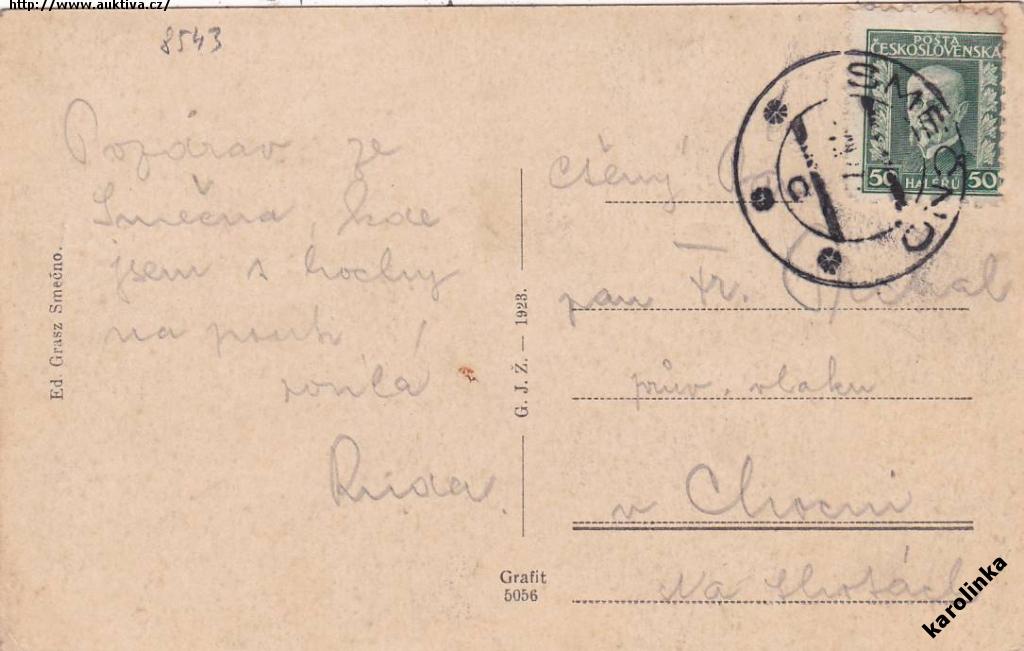 http://www.auktiva.cz/
8543
POŠTA
ČESKOSLOVENSKÁ
50 HALÉŘŮ 50
SMEČNO
Pozdrav ze
Smečna, kde
jsem s hochy
na pouti!
Ruda.
Ctěný
pan Fr.
prův. vlaku
v Chocni
Na
Ed Grasz Smečno.
G. J. Ž. — 1923.
Grafit
5056
karolinka